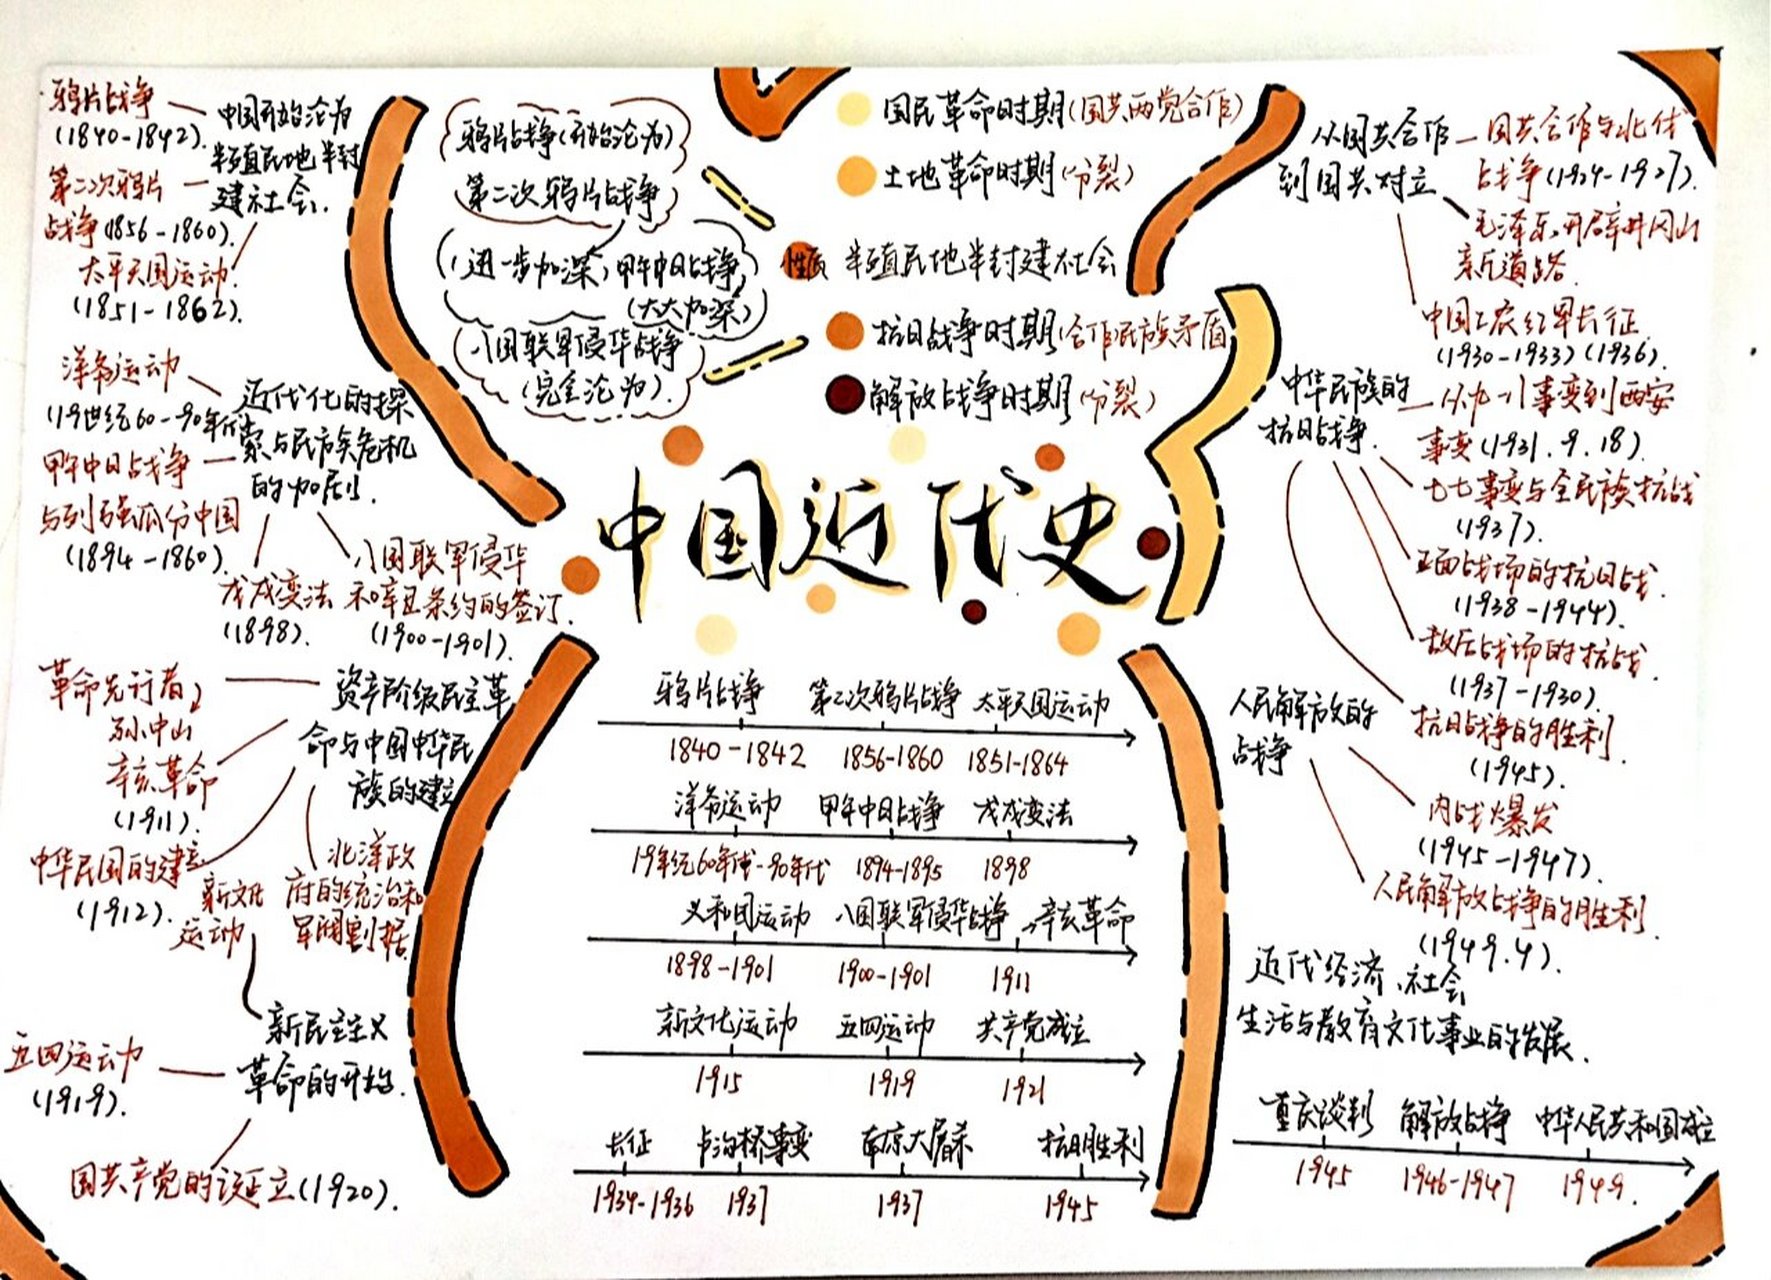 鸦片战争
(1840-1842).
中国开始沦为
半殖民地半封
建社会.
第二次鸦片
战争(1856-1860).
太平天国运动.
(1851-1862).
洋务运动
(19世纪60-90年代)
近代化的探
索与民族危机
的加剧.
甲午中日战争
与列强瓜分中国
(1894-1860).
戊戌变法
(1898).
八国联军侵华
和辛丑条约的签订.
(1900-1901).
革命先行者
孙中山
资产阶级民主革
命与中国中华民
族的建立
辛亥革命
(1911).
中华民国的建立
(1912).
北洋政
府的统治和
军阀割据.
新文化
运动
新民主主义
革命的开始.
五四运动
(1919).
国共产党的诞立(1920).
鸦片战争(开始沦为)
第二次鸦片战争
(进一步加深)甲午中日战争
(大大加深)
八国联军侵华战争
(完全沦为).
国民革命时期(国共两党合作)
土地革命时期(分裂)
性质 半殖民地半封建社会
抗日战争时期(合作民族矛盾)
解放战争时期(分裂)
中国近代史
鸦片战争 第二次鸦片战争 太平天国运动
1840-1842 1856-1860 1851-1864
洋务运动 甲午中日战争 戊戌变法
19年纪60年代-90年代 1894-1895 1898
义和团运动 八国联军侵华战争 辛亥革命
1898-1901 1900-1901 1911
新文化运动 五四运动 共产党成立
1915 1919 1921
长征 卢沟桥事变 南京大屠杀 抗日胜利
1934-1936 1937 1937 1945
从国共合作
到国共对立
国共合作与北伐
战争(1924-1927).
毛泽东开辟井冈山
新道路.
中国工农红军长征.
(1930-1933)(1936).
中华民族的
抗日战争.
从九一八事变到西安
事变(1931.9.18).
七七事变与全民族抗战
(1937).
正面战场的抗日战.
(1938-1944).
敌后战场的抗战.
(1937-1930).
抗日战争的胜利.
(1945).
人民解放的
战争
内战爆发
(1945-1947).
人民解放战争的胜利.
(1949.4).
近代经济、社会
生活与教育文化事业的发展.
重庆谈判 解放战争 中华人民共和国成立
1945 1946-1947 1949.